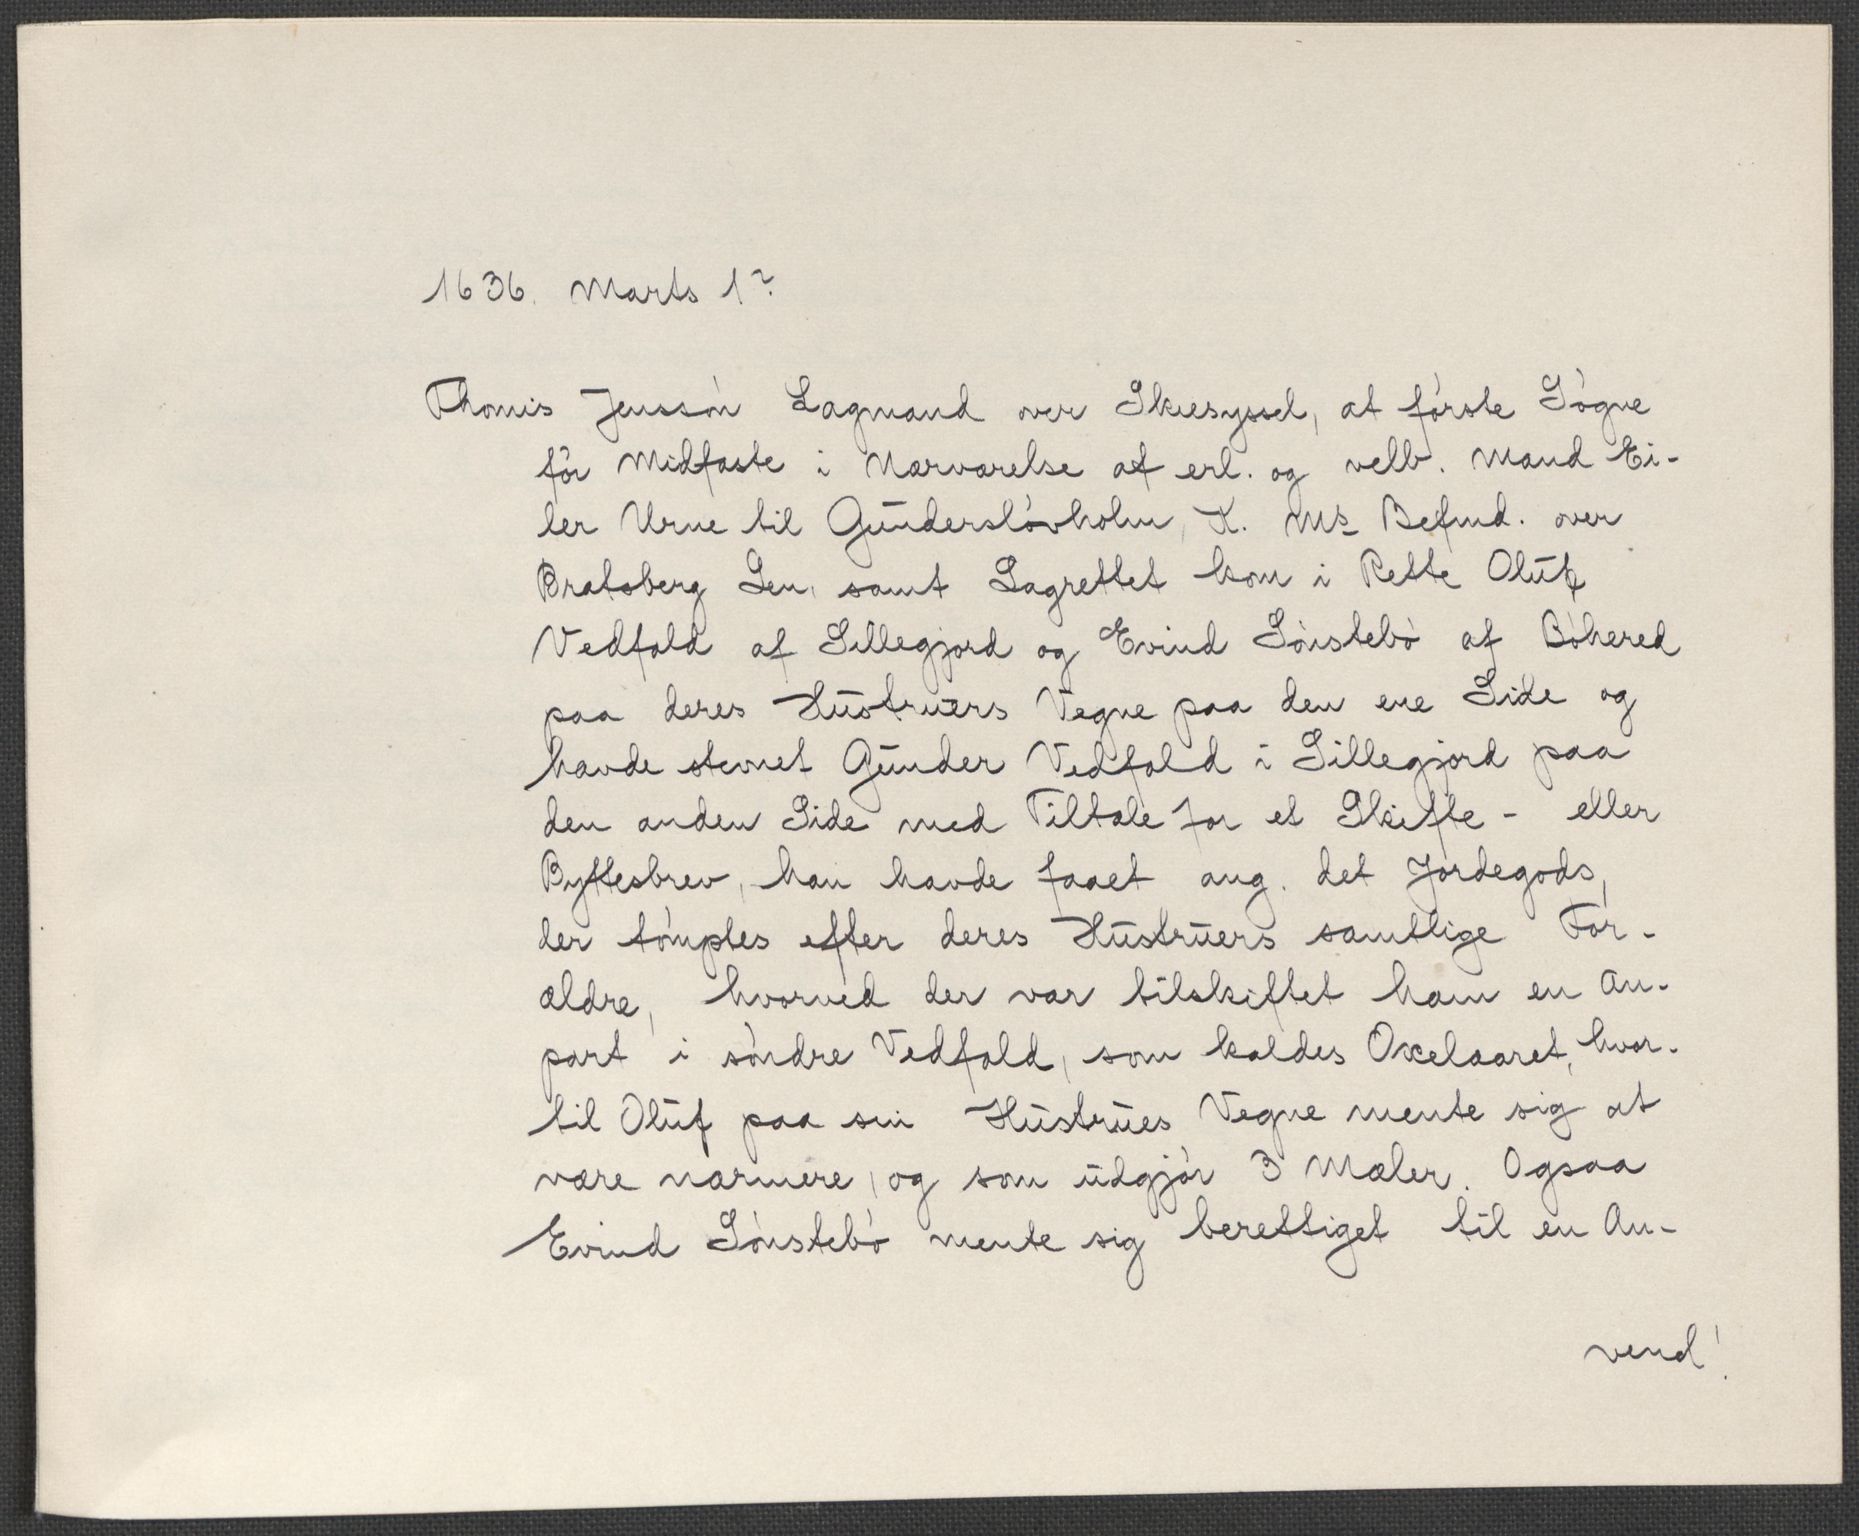 1636. Marts 1?
Thomis Jenssón Lagmand over Skiesyssel, at fórste Sógne
fór Midfaste i Nærværelse af erl. og velb. Mand Ei-
ler Urne til Gunderslóvholm, K. Ms Befmd. over
Bratsberg Len, samt Lagrettet kom i Rette Oluf
Vedfald af Sillegjord og Evind Sónstebó af Bóhered
paa deres Hustruers Vegne paa den ene Side og
havde stevnet Gunder Vedfald i Sillegjord paa
den anden Side med Tiltale for et Skifte- eller
Byttesbrev, han havde faaet ang. det Jordegods,
der tómptes efter deres Hustruers samtlige For-
ældre, hvorved der var tilskiftet ham en An-
part i sóndre Vedfald, som kaldes Oxelaaret, hvor-
til Oluf paa sin Hustrues Vegne mente sig at
være nærmere, og som udgjór 3 Mæler. Ogsaa
Evind Sónstebó mente sig berettiget til en An-
vend!